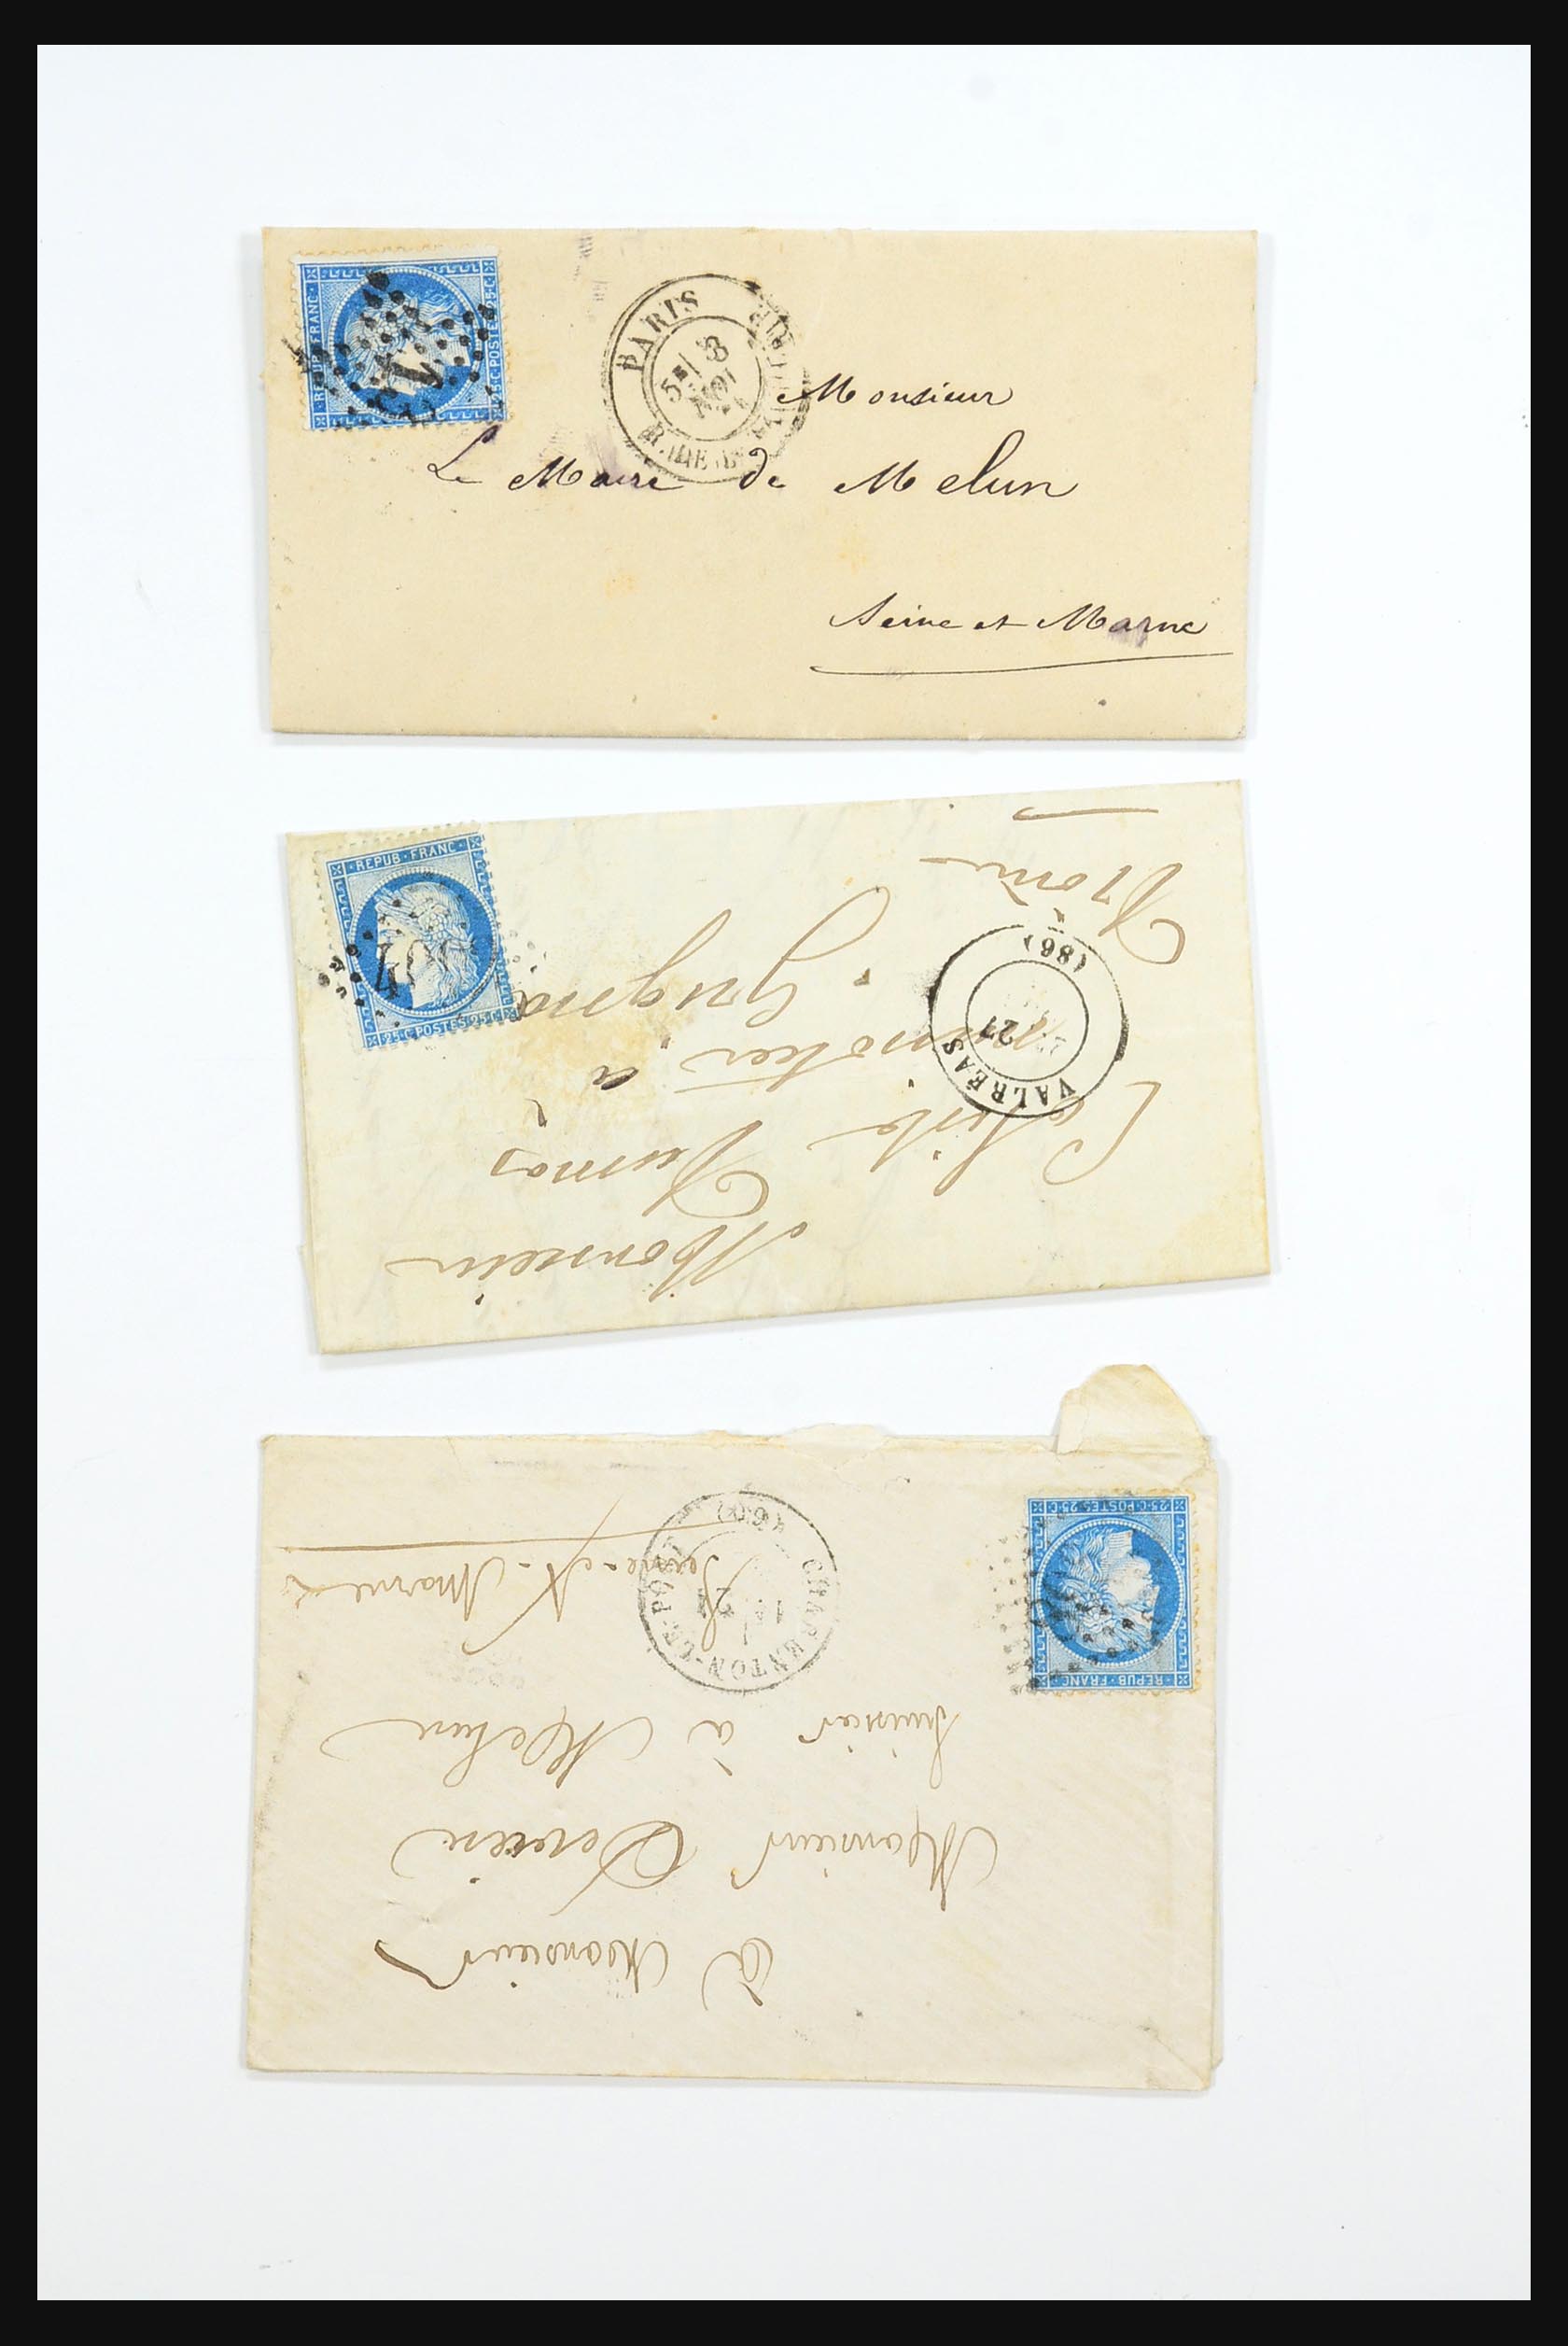 REPUB·FRANC·
25·C·POSTES·25·C·
PARIS
5E 8
NOV
Monsieur
Le Maire de Melun
Seine et Marne
REPUB·FRANC·
25·C·POSTES·25·C·
VALREAS
27
(86)
Monsieur
Dumas
Caliste
à Grignan
Drôme
REPUB·FRANC·
25·C·POSTES·25·C
CHARENTON-LE-PONT
(60)
à Monsieur
Monsieur
huissier à Melun
Seine-et-Marne